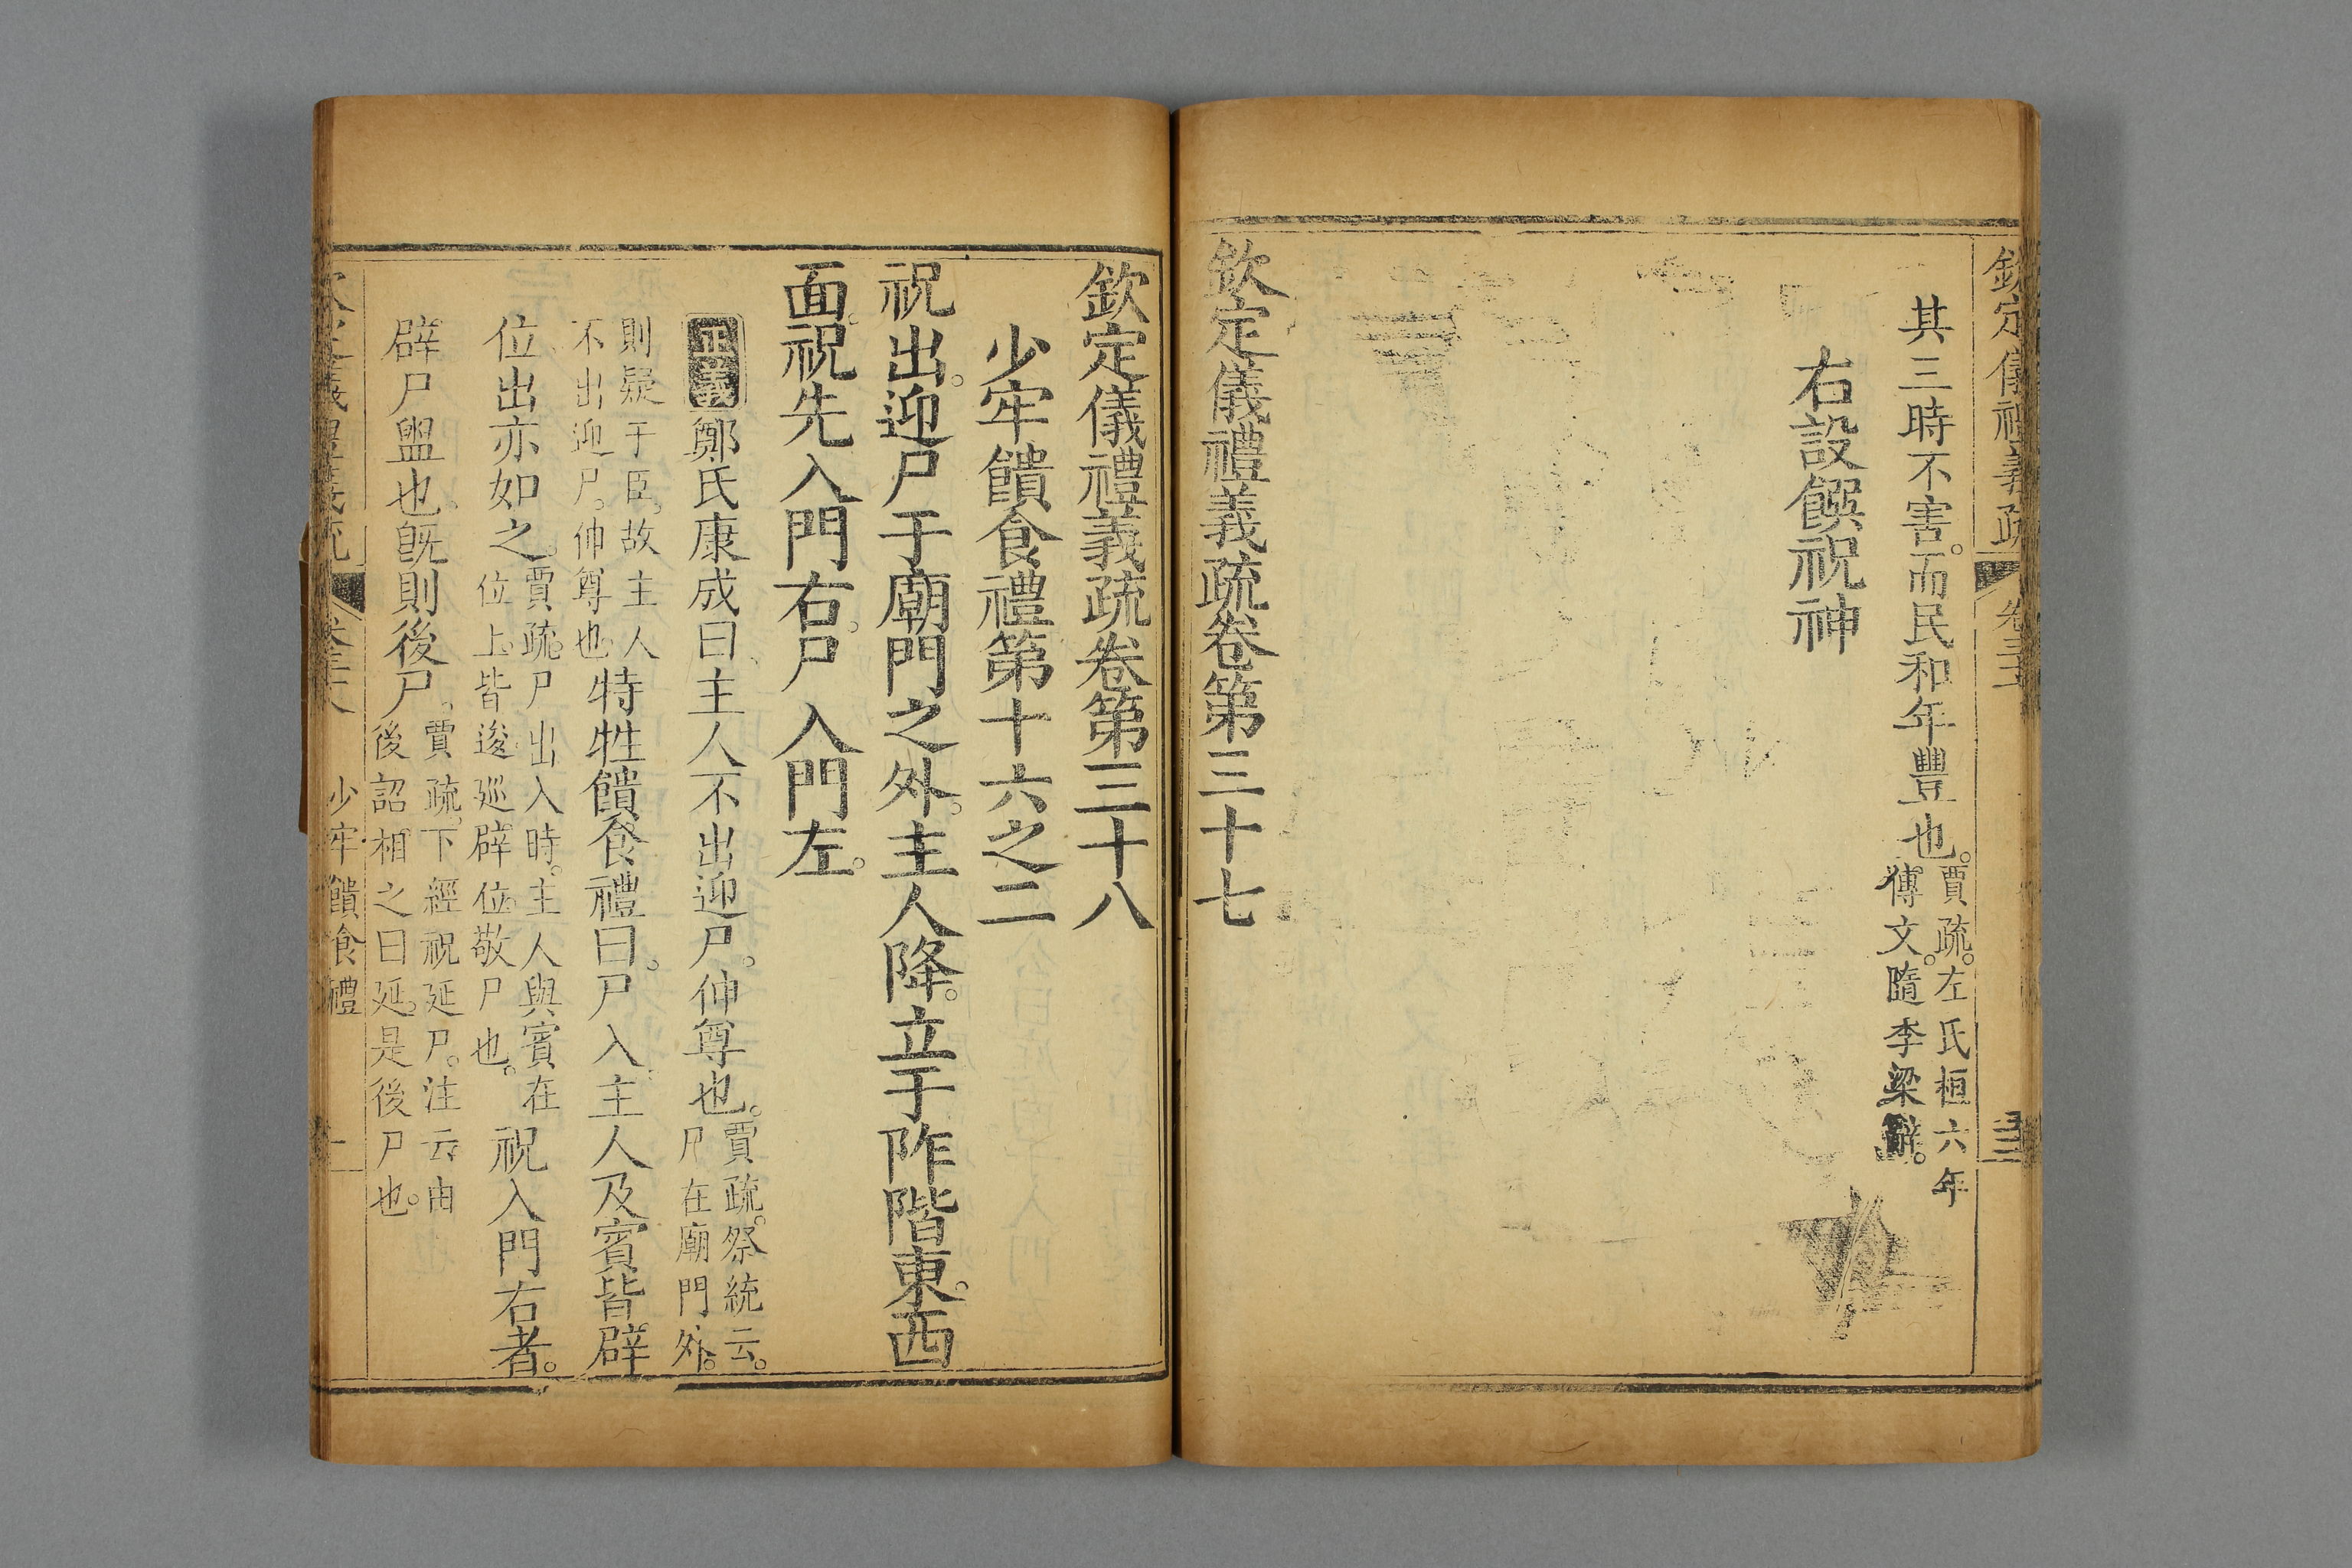 欽定儀禮義疏
卷三十
其三時不害。而民和年豐也。賈疏。左氏桓六年
傳文。隨季梁辭。
右設饌祝神
欽定儀禮義疏卷第三十七
欽定儀禮義疏卷第三十八
少牢饋食禮第十六之二
祝出。迎尸于廟門之外。主人降。立于阼階東。西
面。祝先入門右。尸入門左。
正義鄭氏康成曰、主人不出迎尸。伸尊也。賈疏。祭統云。
尸在廟門外。
則疑于臣。故主人
不出迎尸。伸尊也。特牲饋食禮曰。尸入、主人及賓皆辟
位出亦如之。賈疏。尸出入時。主人與賓在
位上。皆逡巡辟位。敬尸也。祝入門右者。
辟尸盥也。旣則後尸。賈疏。下經祝延尸。注云由
後詔相之曰延。是後尸也。
儀禮義疏 卷三十八 少牢饋食禮 一